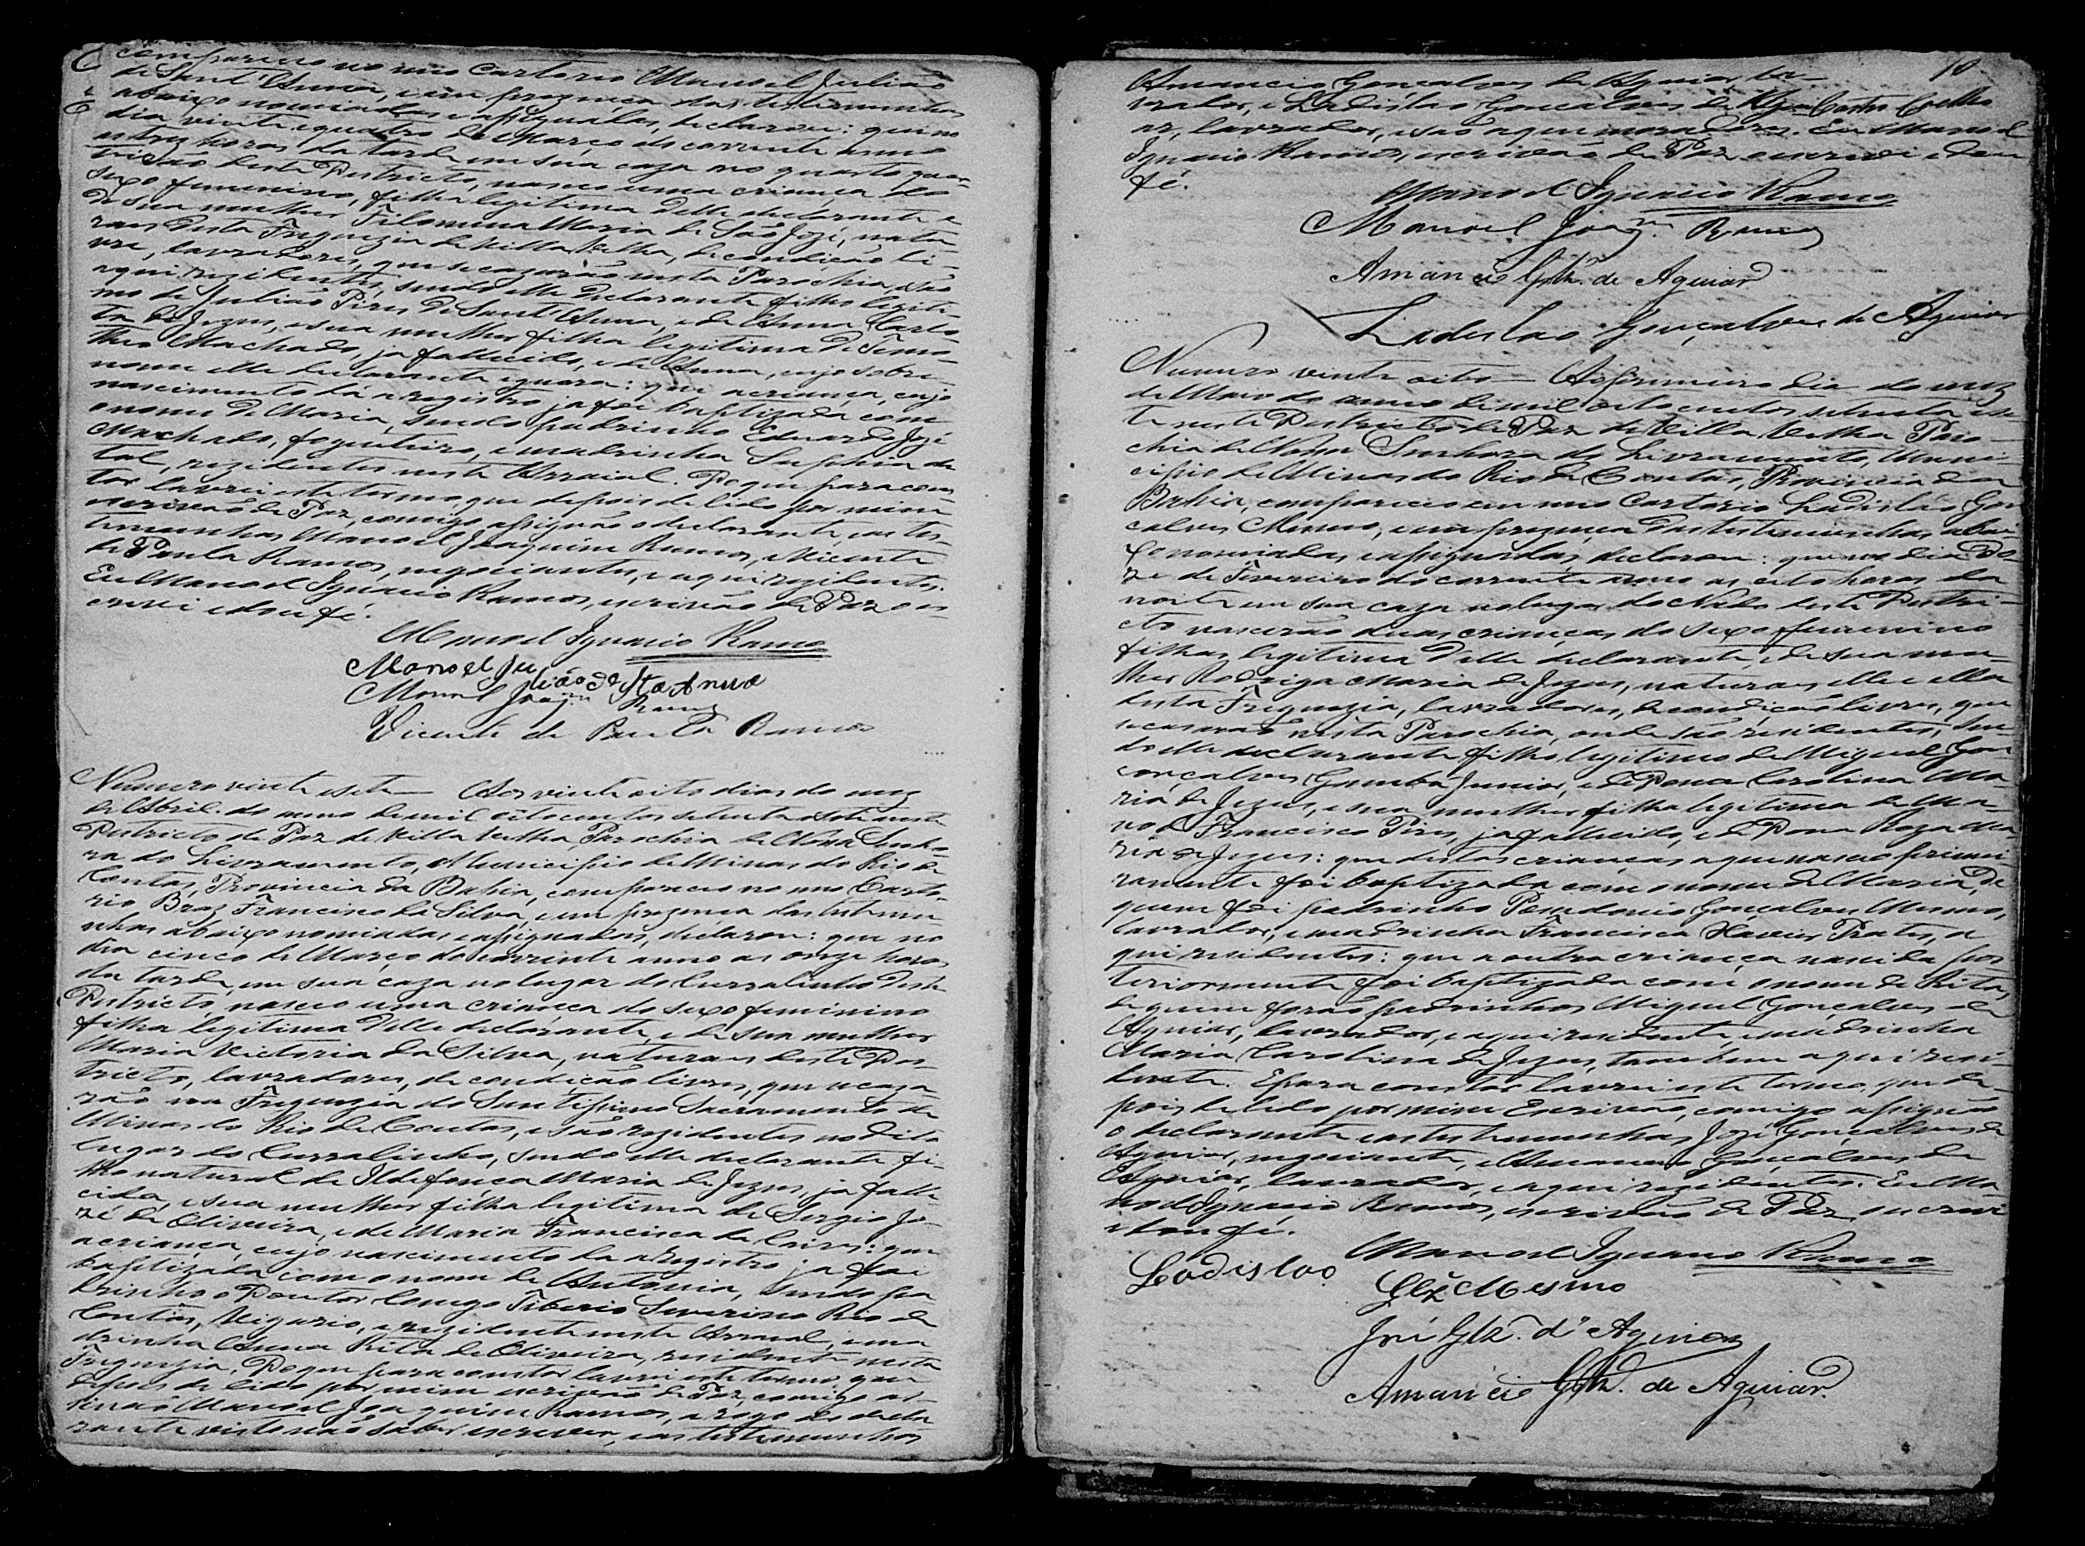 compareceo no meo Cartorio Manoel Julião
de Sant'Anna, e em prezença das testemunhas
abaixo nomiadas e assignadas, declarou: que no
dia vinte e quatro de Março do corrente anno
as tres horas da tarde em sua caza no quarto quar-
teirão deste Districto, nasceo uma criança do
sexo feminino, filha legitima delle declarante e
de sua mulher Filomina Maria de São José, natu-
raes desta Freguezia de Villa Velha, de condição li-
vre, lavradores, que se cazarão nesta Parochia, e são
aqui rezidentes, sendo elle declarante filho legiti-
mo de Julião Pires de Sant'Anna, e de Anna Carlo-
ta de Jezus, e sua mulher filha legitima de Timo-
theo Machado, ja fallecido, e de Anna, cujo sobre-
nome elle declarante ignora: que a criança, cujo
nascimento dá a registro, ja foi baptizada com
o nome de Maria, sendo padrinho Eduardo José
Machado, fogueteiro, e madrinha Sufshia de
tal, rezidentes neste Arraial. Do que para cons-
tar lavrei este termo, que depois de lido por mim
escrivão de Paz, comigo assignão o declarante e as tes-
temunhas Manoel Joaquim Ramos, e Vicente
de Paula Ramos, negociantes, e aqui rezidentes.
Eu Manoel Ignacio Ramos, escrivão de Paz o es-
crevi e dou fé.
Manoel Ignacio Ramos
Manoel Julião de Sta Anna
Manoel Joaqm Ramos
Vicente de Paula Ramos
Numero vinte e sete — Aos vinte oito dias do mez
de Abril do anno de mil oito centos setenta e sete neste
Districto de Paz de Villa Velha Parochia de Nossa Senho-
ra do Livramento, Municipio de Minas do Rio de
Contas, Provincia da Bahia, compareceo no meo Carto-
rio Braz Francisco da Silva, e em prezença das testemu-
nhas abaixo nomiadas e assignadas, declarou: que no
dia cinco de Março do corrente anno as onze horas
da tarde, em sua caza no lugar do Curralinho deste
Districto, nasceo uma criança do sexo feminino
filha legitima delle declarante, e de sua mulher
Maria Victoria da Silva, naturaes deste Dis-
tricto, lavradores, de condição livres, que se caza-
rão na Freguezia do Santissimo Sacramento de
Minas do Rio de Contas, e são rezidentes no dito
lugar do Curralinho, sendo elle declarante fi-
lho natural de Ildefonca Maria de Jezus, ja falle-
cida, e sua mulher filha legitima de Sergio Jo-
zé de Oliveira, e de Maria Francisca de Caires: que
a criança, cujo nascimento da a registro, ja foi
baptizada com o nome de Antonia, sendo pa-
drinho o Doutor Conego Tiberio Severino Rio de
Contas, Vigario, e rezidente neste Arraial, e ma-
drinha Anna Rita de Oliveira, residente nesta
Freguezia. Do que para constar lavrei este termo, que
depois de lido por mim escrivão de Paz, comigo as-
sinão Manoel Joaquim Ramos, a rogo do decla-
rante visto não saber escrever, e as testemunhas
10
Amancio Gonçalves de Aguiar la-
vrador, e Ladislao Gonçalves de
ar, lavrador, e são aqui moradores. Eu Manoel
Ignacio Ramos, escrivão de Paz o escrevi e dou
fé.
Manoel Ignacio Ramos
Manoel Joaqm Ramos
Amancio Glz. de Aguiar
Ladislao Gonçalves de Aguiar
Numero vinte oito — Ao primeiro dia do mez
de Maio do anno de mil oito centos setenta e se-
te neste Districto de Paz de Villa Velha Paro-
chia de Nossa Senhora do Livramento, Muni-
cipio de Minas do Rio de Contas, Provincia da
Bahia, compareceo em meo Cartorio Ladislão Gon-
calves Mesmo, e em prezença das testemunhas abai-
xo nomiadas, e assignadas, declarou: que no dia do-
ze de Fevereiro do corrente anno as oito horas da
noite em sua caza no lugar do Nado deste Distri-
cto nascerão duas crianças do sexo feminino
filhas legitima delle declarante, e de sua mu-
lher Rodriga Maria de Jezus, naturaes elle e ella
desta Freguezia, lavradores, de condição livres, que
se casarão nesta Parochia, onde são residentes, sen-
do elle declarante filho legitimo de Miguel Gon
çonçalves Gamba Junior, e de Dona Carolina Ma-
ria de Jezus, e sua mulher filha legitima de Ma-
noel Francisco Pires, ja fallecido, e de Dona Roza Ma-
ria de Jezus: que destas crianças a que nasceo primei-
ramente foi baptizada com o nome de Maria, de
quem foi padrinho Possidonio Gonçalves Mesmo,
lavrador, e madrinha Francisca Xavier Prates, a-
qui residentes: que a outra criança nascida pos-
teriormente foi baptizada com o nome de Rita,
de quem forão padrinhos Miguel Gonçalves de
Aguiar, lavrador, e aqui residente, e madrinha
Maria Carolina de Jezus, tambem aqui resi-
dente. E para constar lavrei este termo, que de-
pois de lido por mim Escrivão, comigo assignão
o declarante e as testemunhas José Gonçalves de
Aguiar, negociante, e Amancio Gonçalves de
Aguiar, lavrador, e aqui rezidentes. Eu Ma-
noel Ignacio Ramos, escrivão de Paz, o escrevi
e dou fé.
Manoel Ignacio Ramos
Ladislao Glz Mesmo
José Glz. d'Aguiar
Amancio Glz. de Aguiar.